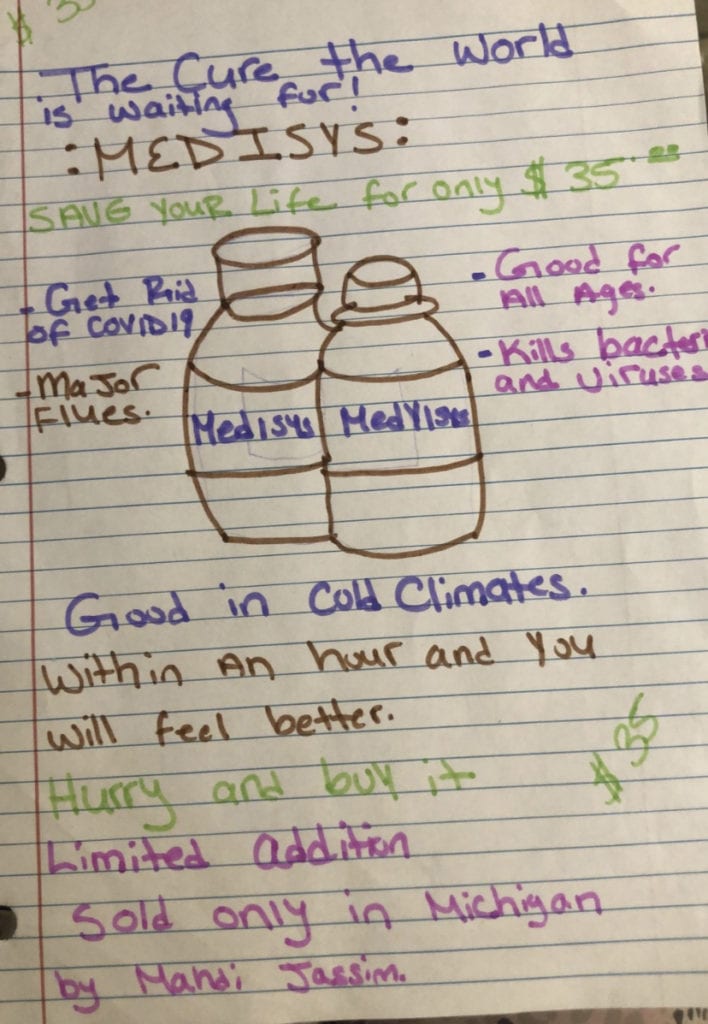 $ 35
The Cure the World
is waiting for!
:MEDISYS:
SAVE YOUR Life for only $ 35.00
- Get Rid
of COVID19
- Major
Flues.
- Good for
All Ages.
- Kills bacteri
and Viruses
Medisys
MedYisys
Good in Cold Climates.
Within An hour and You
will feel better.
Hurry and buy it
$ 35
Limited addition
Sold only in Michigan
by Mahdi Jassim.